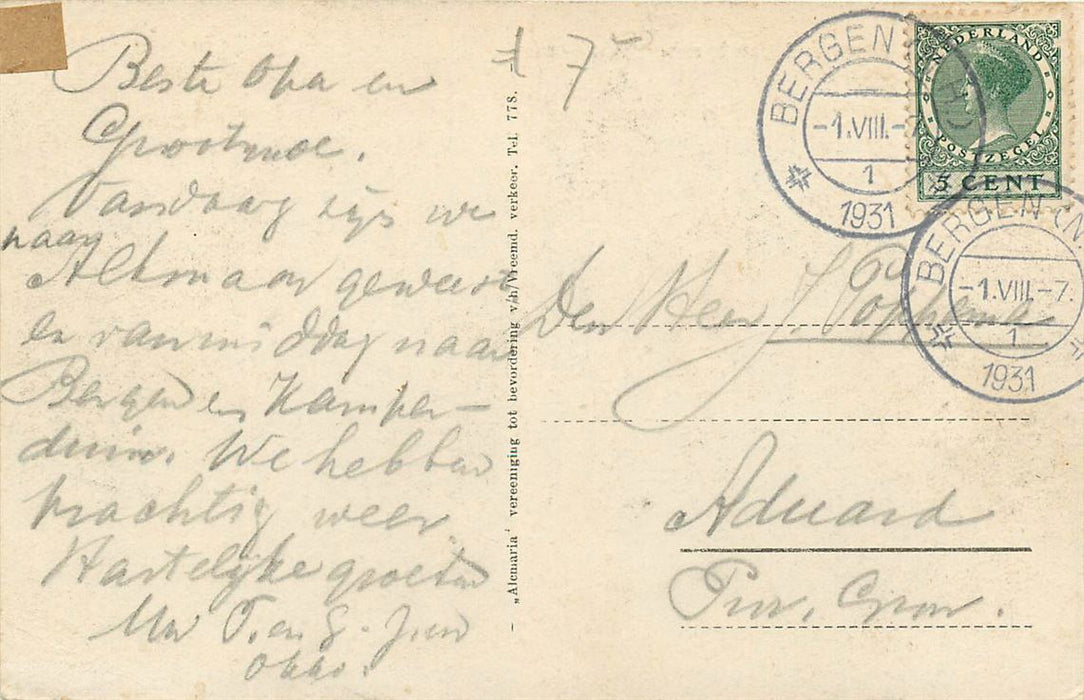 Beste Opa en
Grootmoe.
Vandaag zijn we
naar
Alkmaar geweest
en vanmiddag naar
Bergen en Kamper-
duin. We hebben
prachtig weer.
Hartelijke groeten
T. en G.
Okko.
„Alcmaria" vereeniging tot bevordering v/h/Vreemd. verkeer. Tel. 778.
7
BERGEN (N.H.)
-1.VIII.-7.
1
1931
NEDERLAND
POSTZEGEL
5 CENT
BERGEN (N
-1.VIII.-7.
1
1931
Den Heer J. Poppema
Aduard
Prov. Gron.